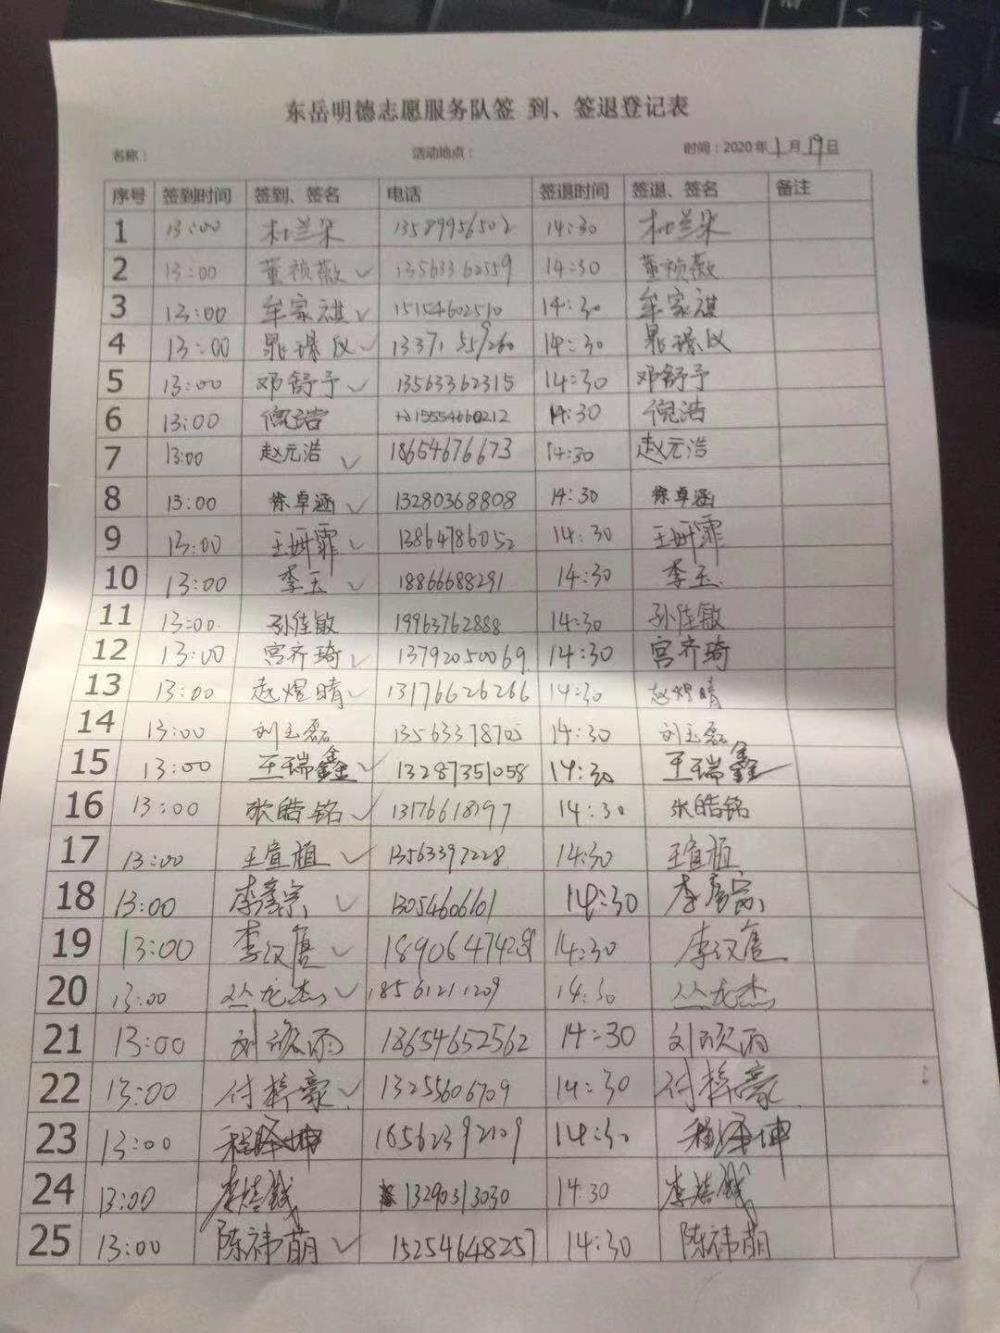 东岳明德志愿服务队签 到、签退登记表
名称： 活动地点： 时间：2020年1月19日
序号 签到时间 签到、签名 电话 签退时间 签退、签名 备注
1 13:00 杜兰朵 13589956502 14:30 杜兰朵
2 13:00 董祯薇 ✓ 13563362559 14:30 董祯薇
3 13:00 牟家祺 ✓ 15154602510 14:30 牟家祺
4 13:00 晁璟仪 ✓ 13371559260 14:30 晁璟仪
5 13:00 邓舒予 ✓ 13563362315 14:30 邓舒予
6 13:00 倪浩 15554660212 14:30 倪浩
7 13:00 赵元浩 ✓ 18654676673 14:30 赵元浩
8 13:00 徐卓涵 ✓ 13280368808 14:30 徐卓涵
9 13:00 王妍霏 ✓ 13864786052 14:30 王妍霏
10 13:00 李玉 ✓ 18866688291 14:30 李玉
11 13:00 孙佳敏 19963762888 14:30 孙佳敏
12 13:00 宫齐琦 ✓ 13792050069 14:30 宫齐琦
13 13:00 赵煜晴 ✓ 13176626266 14:30 赵煜晴
14 13:00 刘玉磊 13563378705 14:30 刘玉磊
15 13:00 王瑞鑫 ✓ 13287351058 14:30 王瑞鑫
16 13:00 张皓铭 ✓ 13176618797 14:30 张皓铭
17 13:00 王宣植 ✓ 13563397228 14:30 王宣植
18 13:00 李彦宗 ✓ 13054606101 14:30 李彦宗
19 13:00 李汉唐 ✓ 1890647428 14:30 李汉唐
20 13:00 丛龙杰 ✓ 18561211209 14:30 丛龙杰
21 13:00 刘欣雨 18654652562 14:30 刘欣雨
22 13:00 付梓豪 ✓ 13255606709 14:30 付梓豪
23 13:00 程泽坤 16562392109 14:30 程泽坤
24 13:00 13290313030 14:30
25 13:00 陈祎萌 ✓ 15254648257 14:30 陈祎萌